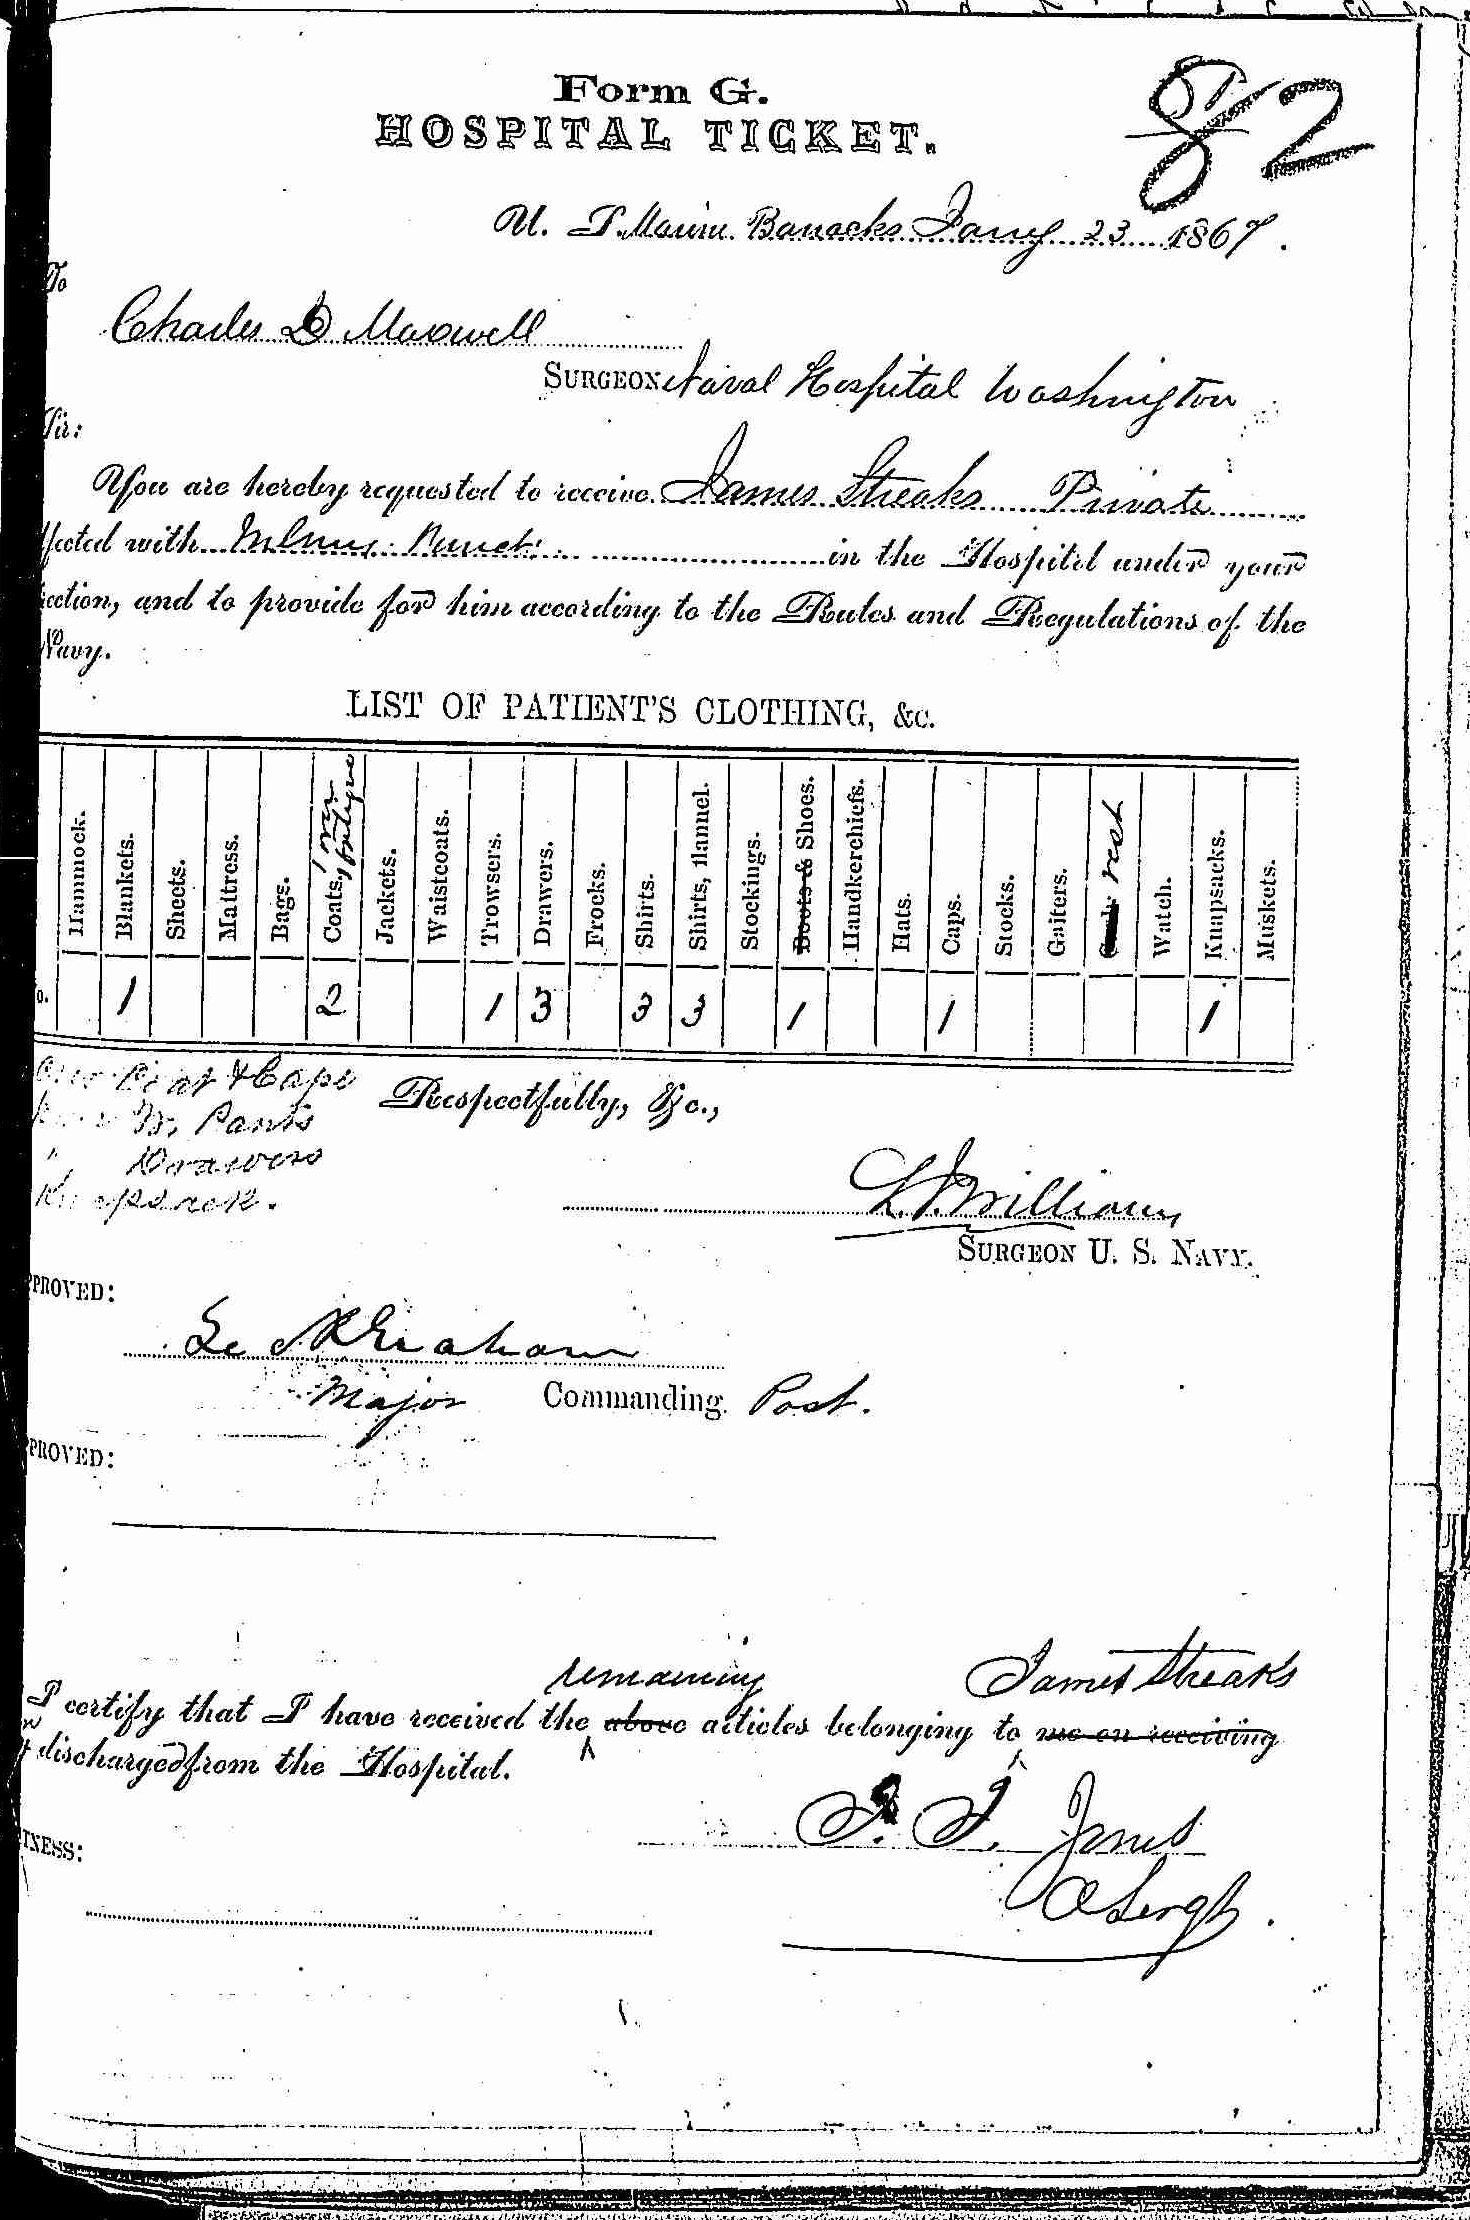 Form G.
HOSPITAL TICKET.
82
U. S. Marine Barracks Jany 23 1867.
To
Charles D Maxwell
SURGEON Naval Hospital Washington
Sir:
You are hereby requested to receive James Streaks Private
ffected with in the Hospital under your
ection, and to provide for him according to the Rules and Regulations of the
Navy.
LIST OF PATIENT'S CLOTHING, &c.
Hammock. Blankets. Sheets. Mattress. Bags. Coats, 1 over 1 fatigue Jackets. Waistcoats. Trowsers. Drawers. Frocks. Shirts. Shirts, flannel. Stockings. Boots & Shoes. Handkerchiefs. Hats. Caps. Stocks. Gaiters. vest Watch. Knapsacks. Muskets.
o. 1 2 1 3 3 3 1 1 1
Coat & Cape
Pants
" Drawers
Knapsack.
Respectfully, &c.,
Williams
SURGEON U. S. NAVY.
PPROVED:
Graham
Major Commanding Post.
PPROVED:
remaining James Streaks
I certify that I have received the above articles belonging to me on receiving
discharged from the Hospital.
J. J. Jones
O Sergt.
TNESS: